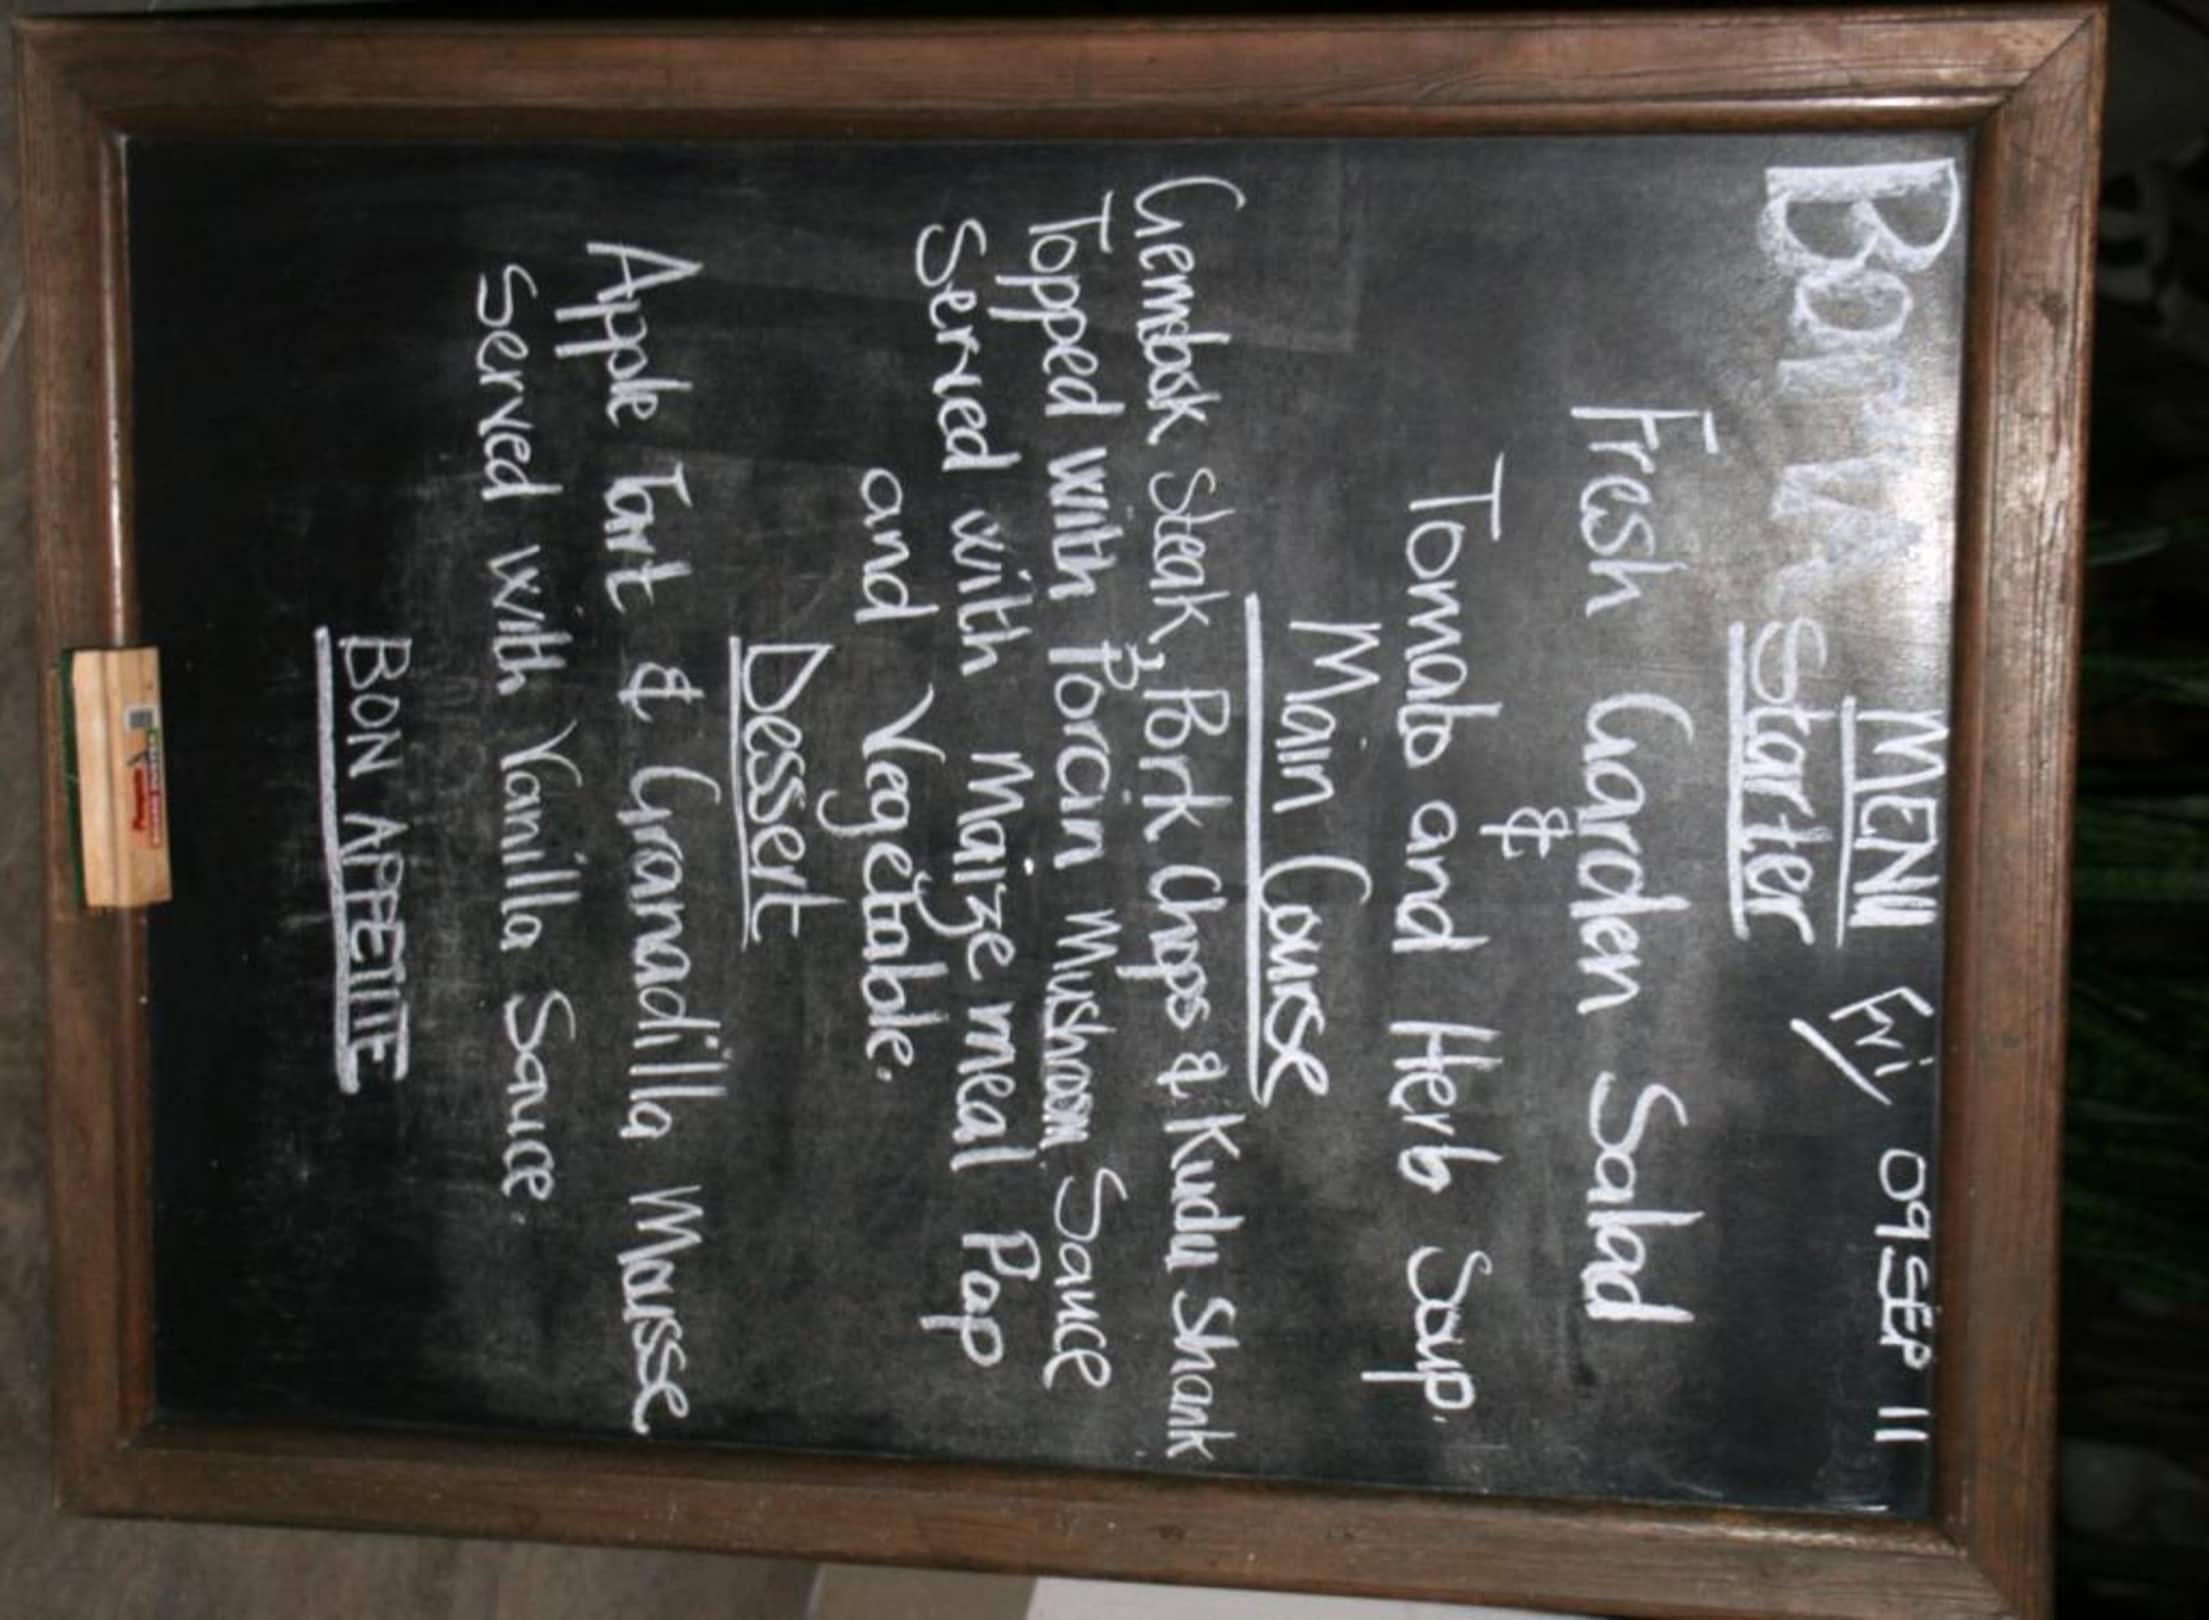 MENU Fri, 09 SEP 11
Starter
Fresh Garden Salad
&
Tomato and Herb Soup.
Main Course
Gemsbok Steak, Pork Chops & Kudu Shank
Topped with Porcin Mushroom Sauce
Served with Maize meal Pap
and Vegetable.
Dessert
Apple Tart & Granadilla Mousse
Served with Vanilla Sauce.
BON APPETITE